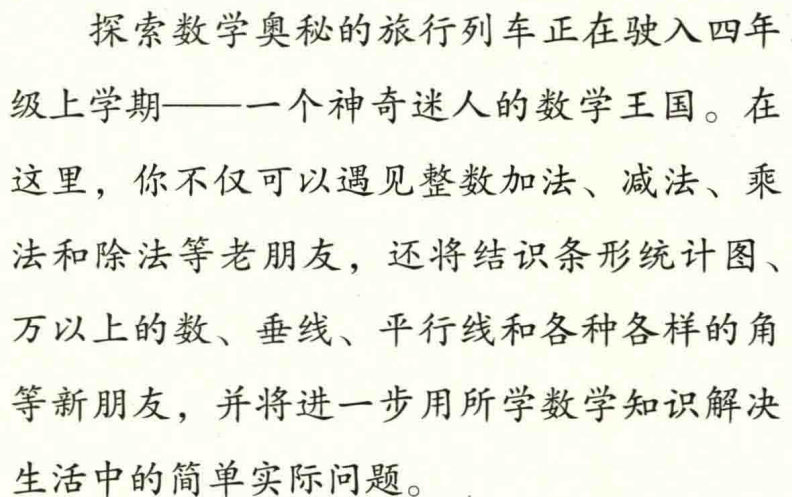 探索数学奥秘的旅行列车正在驶入四年
级上学期——一个神奇迷人的数学王国。在
这里，你不仅可以遇见整数加法、减法、乘
法和除法等老朋友，还将结识条形统计图、
万以上的数、垂线、平行线和各种各样的角
等新朋友，并将进一步用所学数学知识解决
生活中的简单实际问题。